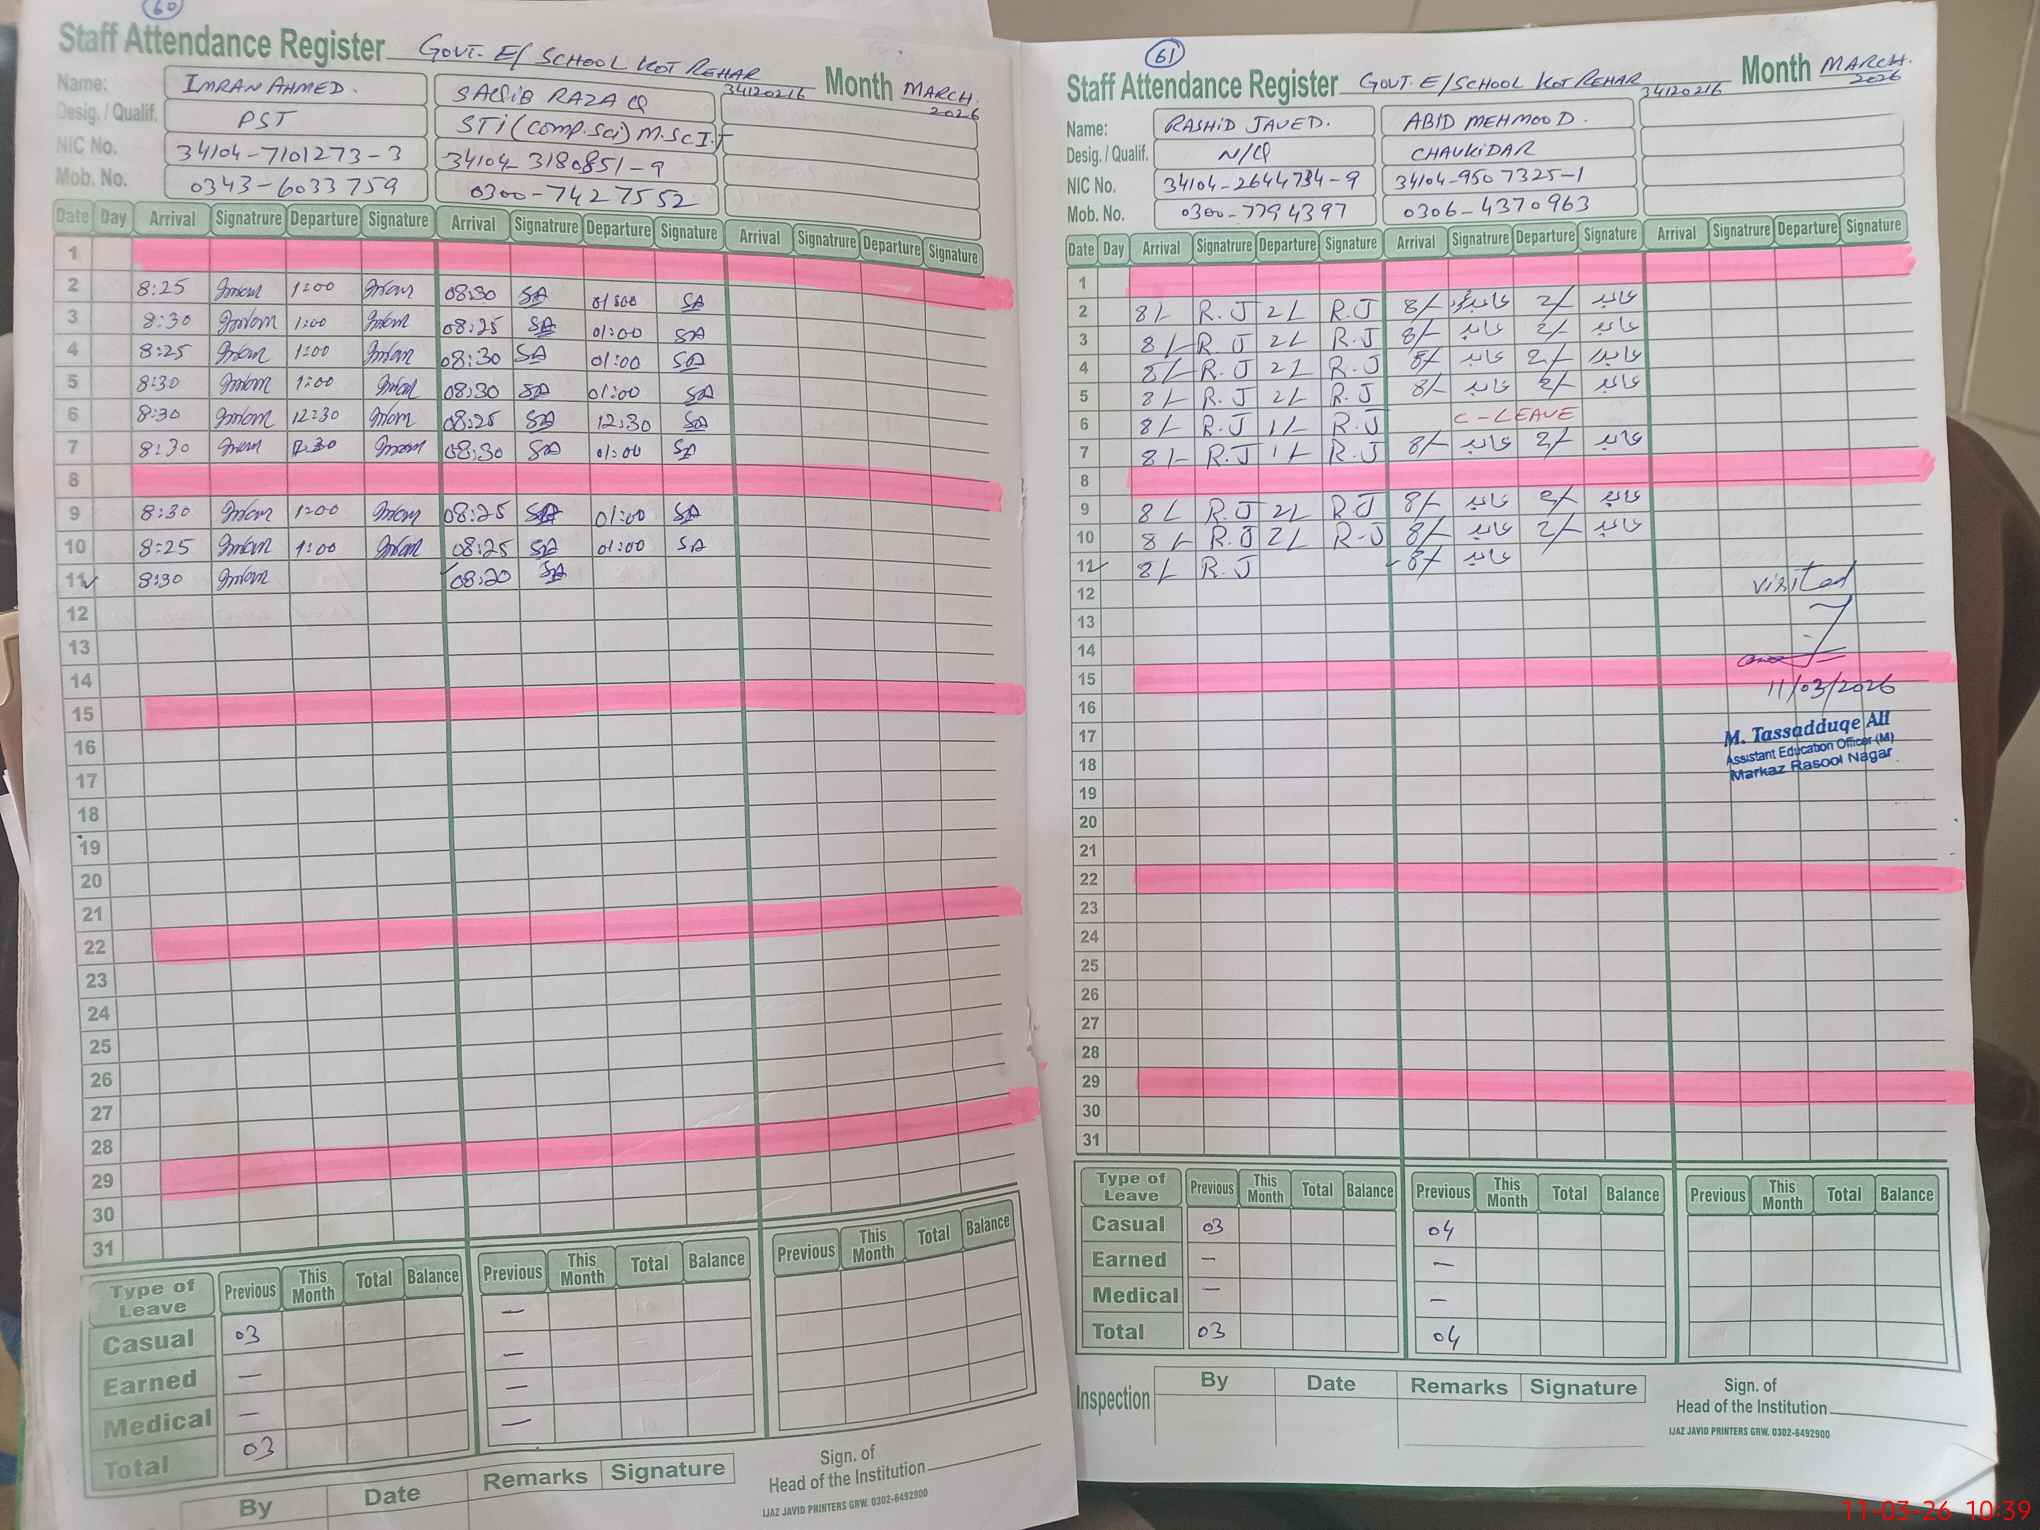 60
Staff Attendance Register GOVT. E/ SCHOOL KOT REHAR 34120216 Month MARCH. 2026
Name: IMRAN AHMED. SAQIB RAZA Q
Desig. / Qualif. PST STi (Comp.Sci) M.Sc I.T
NIC No. 34104-7101273-3 34104-3180851-9
Mob. No. 0343-6033759 0300-7427552
Date Day Arrival Signatrure Departure Signature Arrival Signatrure Departure Signature Arrival Signatrure Departure Signature
1
2 8:25 Imran 1:00 Imran 08:30 SA 01:00 SA
3 8:30 Imran 1:00 Imran 08:25 SA 01:00 SA
4 8:25 Imran 1:00 Imran 08:30 SA 01:00 SA
5 8:30 Imran 1:00 Imran 08:30 SA 01:00 SA
6 8:30 Imran 12:30 Imran 08:25 SA 12:30 SA
7 8:30 Imran Imran 08:30 SA 01:00 SA
8
9 8:30 Imran 1:00 Imran 08:25 SA 01:00 SA
10 8:25 Imran 1:00 Imran 08:25 SA 01:00 SA
11 8:30 Imran 08:20 SA
12
13
14
15
16
17
18
19
20
21
22
23
24
25
26
27
28
29
30
31
Type of Leave Previous This Month Total Balance Previous This Month Total Balance Previous This Month Total Balance
Casual 03 —
Earned — —
Medical — —
Total 03 —
By Date Remarks Signature
Sign. of
Head of the Institution
IJAZ JAVID PRINTERS GRW. 0302-6492900
61
Staff Attendance Register GOVT. E/SCHOOL KOT REHAR 34120216 Month MARCH. 2026
Name: RASHID JAVED. ABID MEHMOOD.
Desig. / Qualif. N/Q CHAUKIDAR
NIC No. 34104-2644734-9 34104-9507325-1
Mob. No. 0300-7794397 0306-4370963
Date Day Arrival Signatrure Departure Signature Arrival Signatrure Departure Signature Arrival Signatrure Departure Signature
1
2 8/- R.J 2/- R.J 8/- عابد 2/- عابد
3 8/- R.J 2/- R.J 8/- عابد 2/- عابد
4 8/- R.J 2/- R.J 8/- عابد 2/- عابد
5 8/- R.J 2/- R.J 8/- عابد 2/- عابد
6 8/- R.J 1/- R.J C-LEAVE
7 8/- R.J 1/- R.J 8/- عابد 2/- عابد
8
9 8/- R.J 2/- R.J 8/- عابد 2/- عابد
10 8/- R.J 2/- R-J 8/- عابد 2/- عابد
11 8/- R.J 8/- عابد
12
13
14
15
16
17
18
19
20
21
22
23
24
25
26
27
28
29
30
31
visited
11/03/2026
M. Tassadduqe Ali
Assistant Education Officer (M)
Markaz Rasool Nagar
Type of Leave Previous This Month Total Balance Previous This Month Total Balance Previous This Month Total Balance
Casual 03 04
Earned — —
Medical — —
Total 03 04
Inspection By Date Remarks Signature
Sign. of
Head of the Institution
IJAZ JAVID PRINTERS GRW. 0302-6492900
11-03-26 10:39